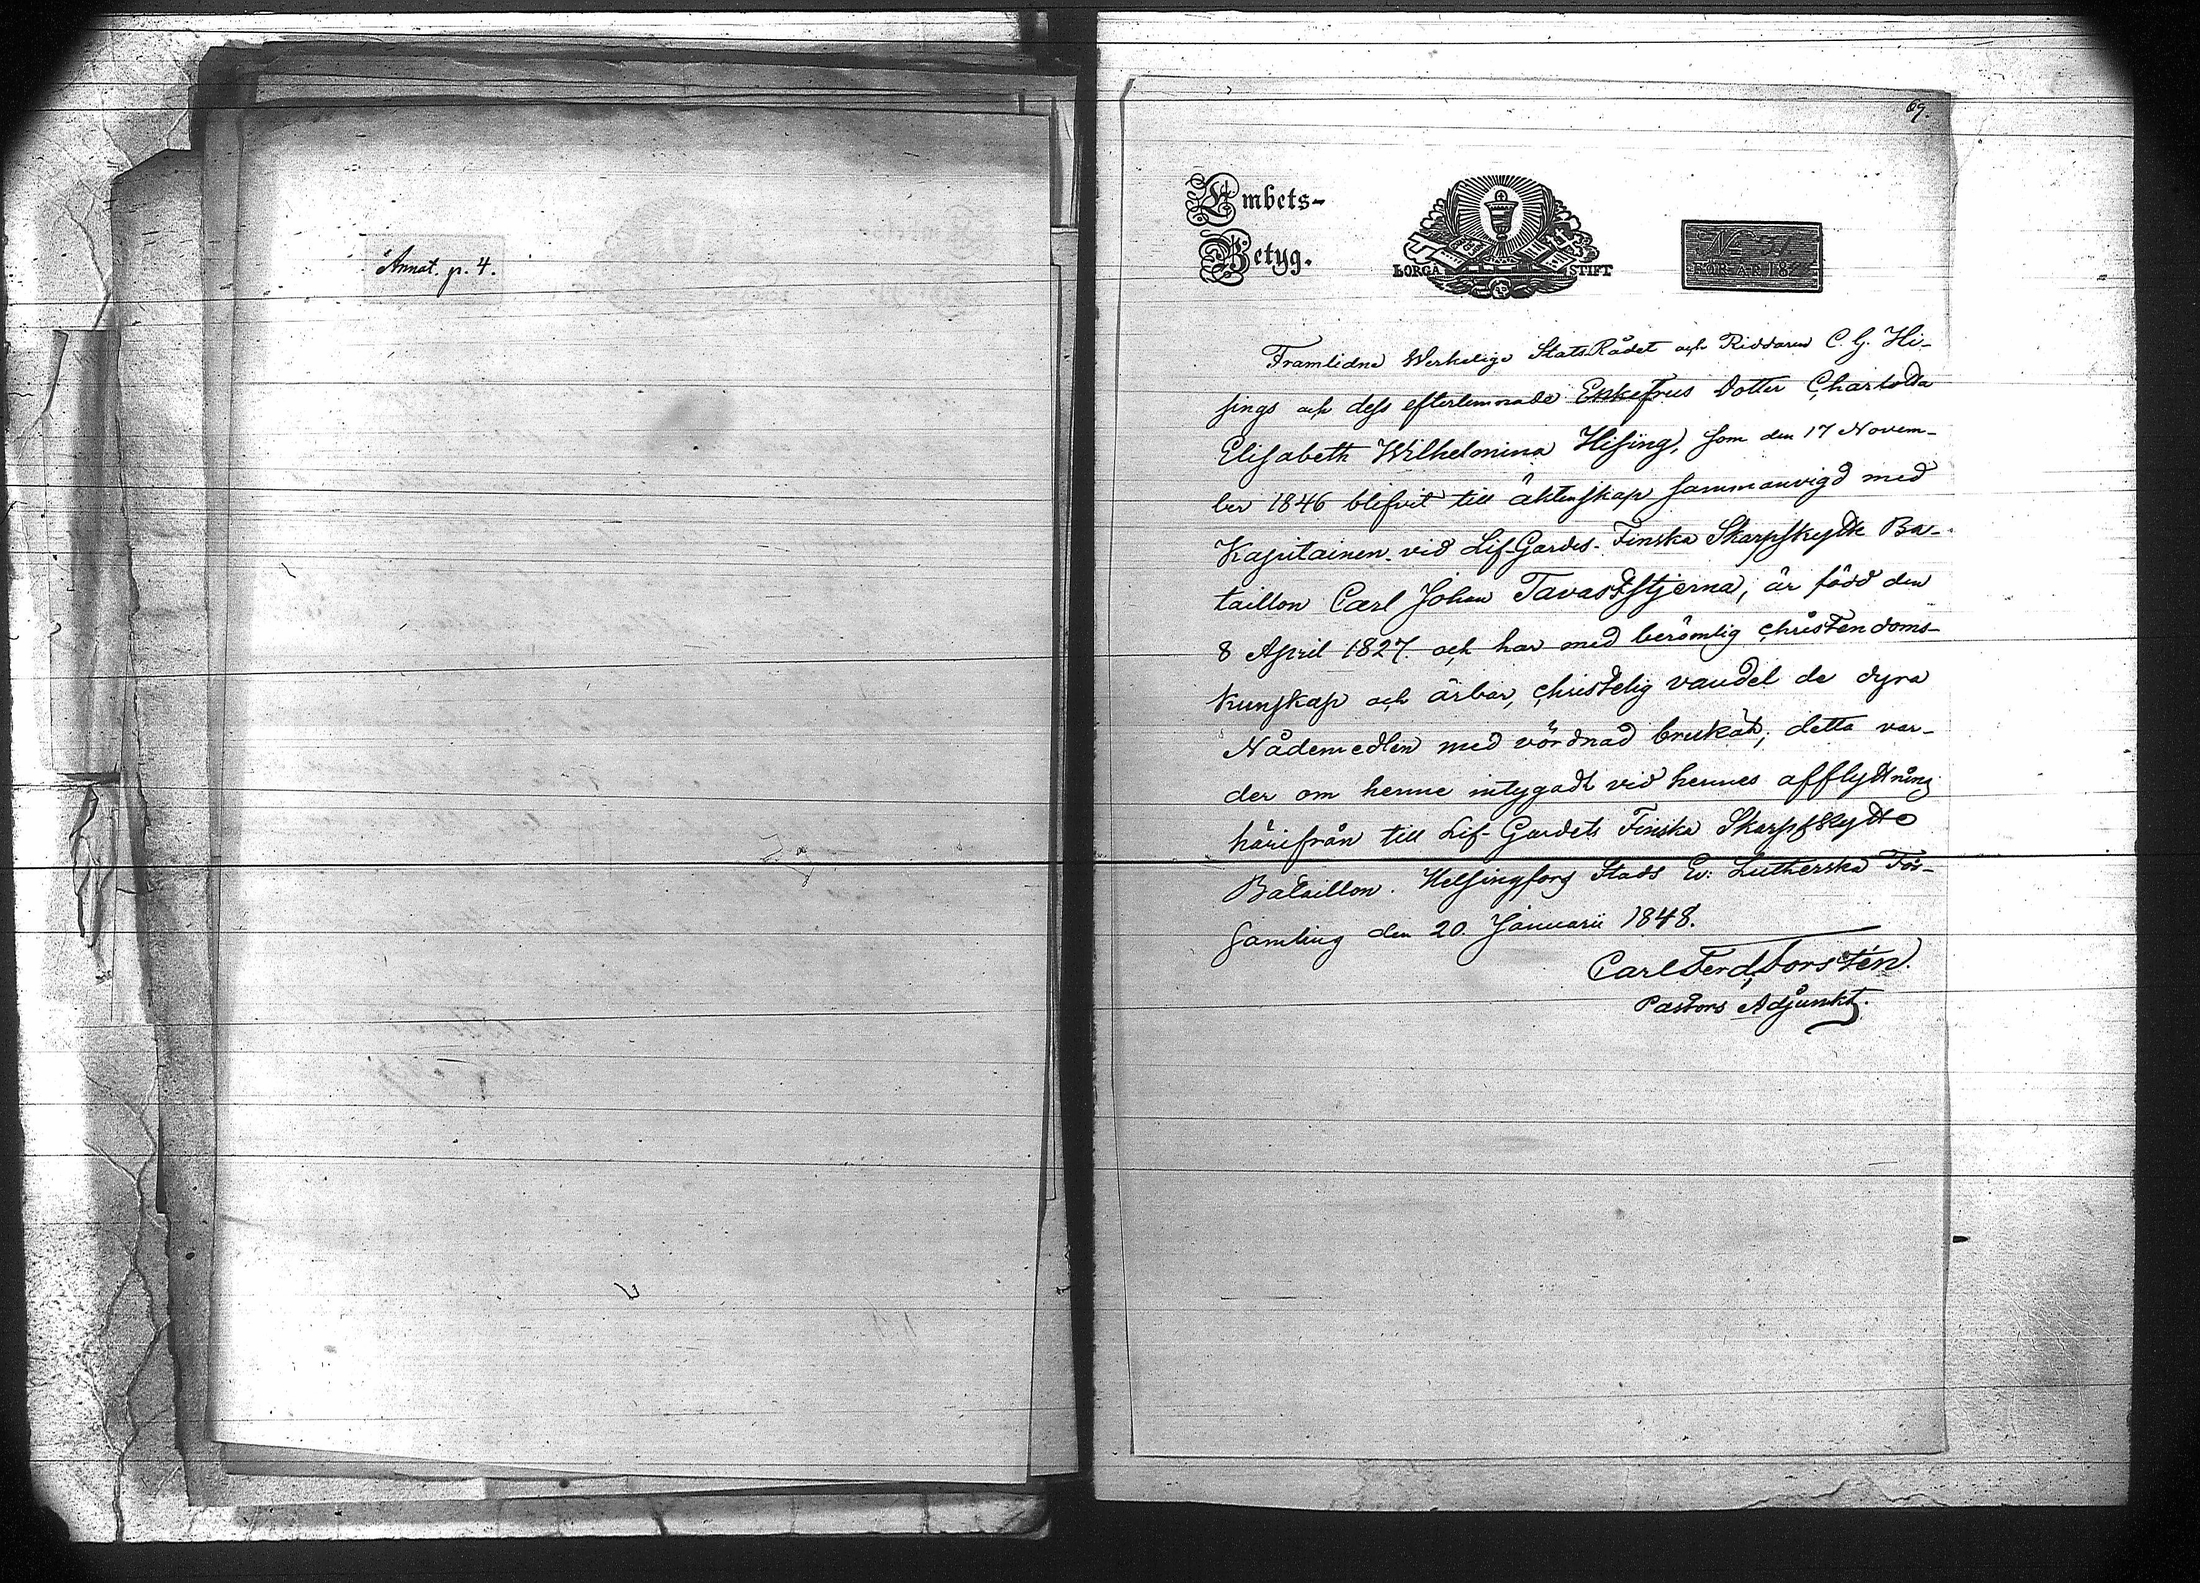 Annot. p. 4.
69.
Embets-
Betyg.
BORGÅ STIFT
No 31
FÖR ÅR 18
Framlidne Werkelige StatsRådet och Riddaren C. G. Hi-
sings och dess efterlemnade Enkefrus dotter Charlotta
Elisabeth Wilhelmina Hising, som den 17 Novem-
ber 1846 blifvit till äktenskap sammanvigd med
Kapitainen vid Lif-Gardes Finska Skarpskytte Ba-
taillon Carl Johan Tavaststjerna, är född den
8 April 1827. och har med berömlig christendoms-
kunskap och ärbar, christelig vandel de dyra
Nådemedlen med vördnad brukat; detta var-
der om henne intygadt vid hennes afflyttning
härifrån till Lif-Gardets Finska Skarpskytte
Bataillon. Helsingfors Stads Ev: Lutherska För-
samling den 20. Januarii 1848.
Carl Ferd. Forstén.
Pastors Adjunkt.